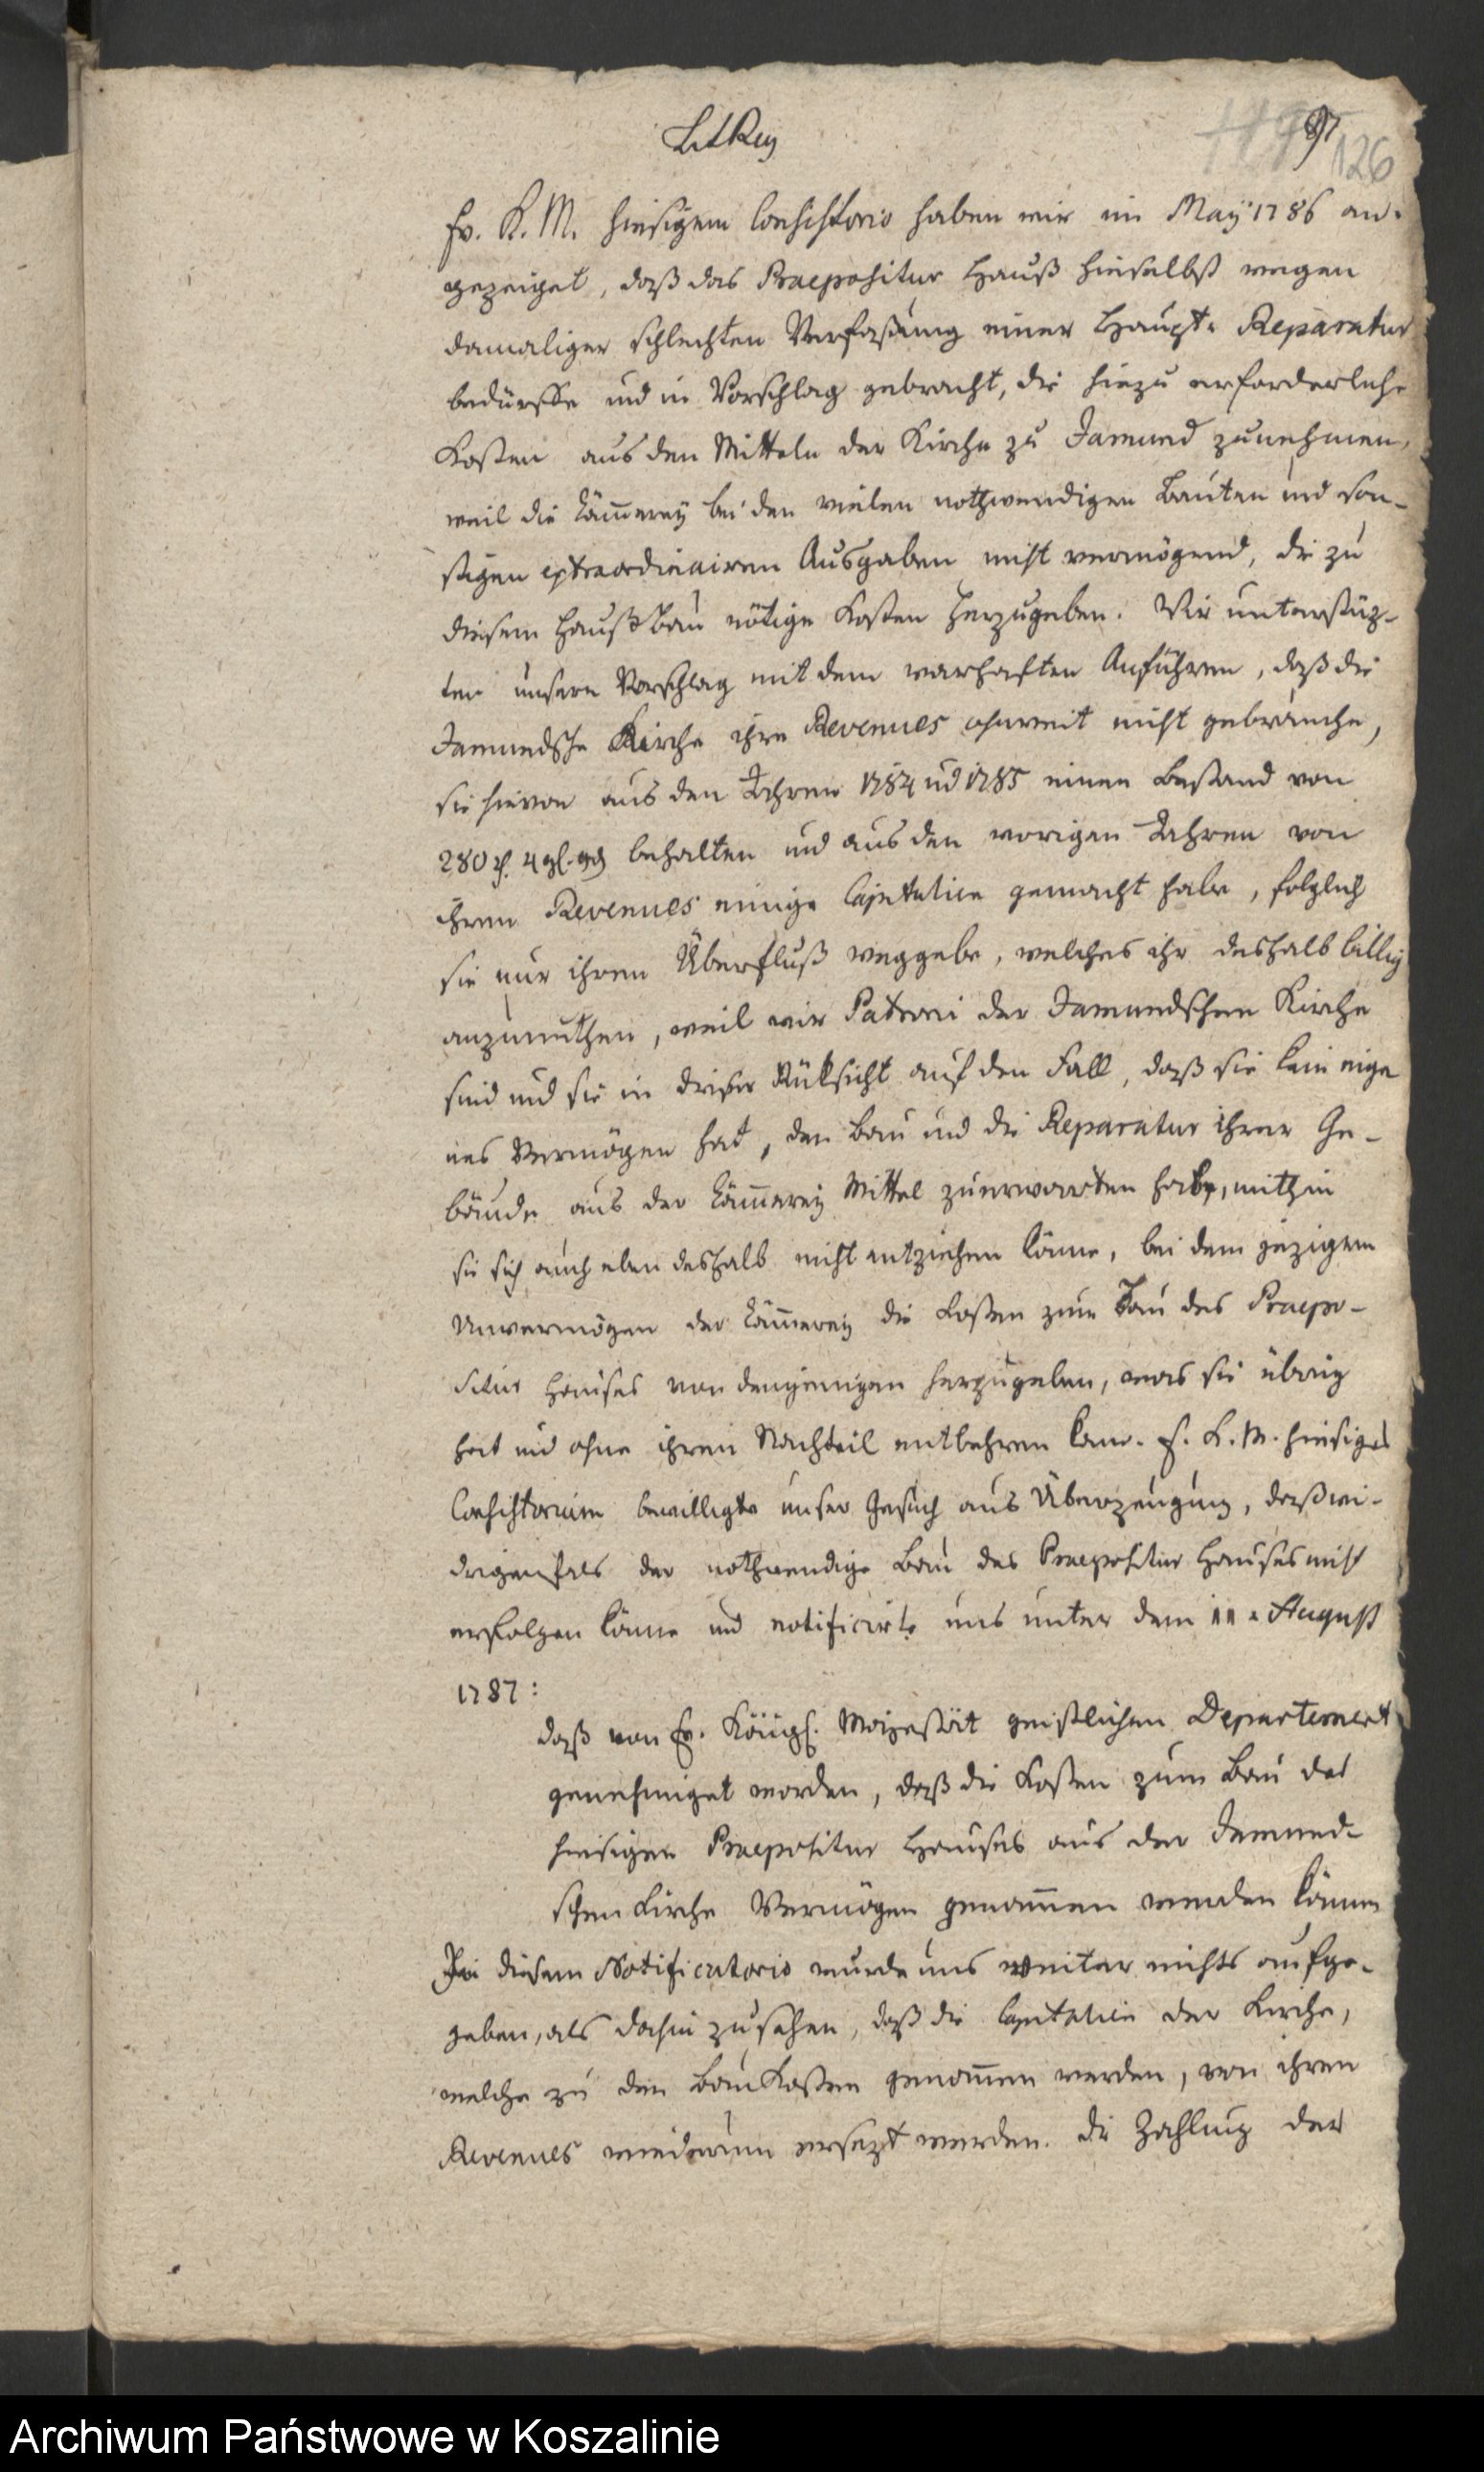 97
126
Ew. K. M. hiesigem Consistorio haben wir im May 1786 an-
gezeiget, daß das Praepositur Hauß hieselbst wegen
damaliger schlechten Verfaßung einer Haupt-Reparatur
bedürffe und in Vorschlag gebracht, die hiezu erforderliche
Kosten aus den Mitteln der Kirche zu Jamund zunehmen,
weil die Cämmerey bei den vielen nothwendigen Bauten und son-
stigen extraordinairen Ausgaben nicht vermögend, die zu
diesem Haußbau nötige Kosten herzugeben. Wir unterstüz-
ten unsern Vorschlag mit dem warhaften Anführen, daß die
Jamundsche Kirche ihre Revenues ohnweit nicht gebrauche,
sie hievon aus den Jahren 1784 und 1785 einen Bestand von
280 rt. 4 gl. behalten und aus den vorigen Jahren von
ihren Revenues einige Capitalien gemacht habe, folglich
sie nur ihren Überfluß weggebe, welches ihr deshalb billig
anzumuthen, weil wir Patroni der Jamundschen Kirche
sind und sie in dieser Rüksicht auf den Fall, daß sie kein eige
nes Vermögen hat, den Bau und die Reparatur ihrer Ge-
bäude aus der Cämmerey Mittel zuerwarten habe, mithin
sie sich auch eben deshalb nicht entziehen könne, bei dem jezigem
Unvermögen der Cämmerey die Kosten zum Bau des Praepo-
situr Hauses von demjenigen herzugeben, was sie übrig
hat und ohne ihren Nachteil entbehren kann. E. K. M. hiesiges
Consistorium bewilligte unser Gesuch aus Überzeugung, daß wi-
drigenfals der nothwendige Bau des Praepositur Hauses nicht
erfolgen könne und notificirte uns unter dem 11 August
1787:
daß von Ew. Königl. Majestät geistlichen Departement
genehmiget worden, daß die Kosten zum Bau des
hiesigen Praepositur Hauses aus der Jamund-
schen Kirche Vermögen genommen werden können
In diesem Notificatorio wurde uns weiter nichts aufge-
geben, als dahin zu sehen, daß die Capitalien der Kirche,
welche zu den Baukosten genommen werden, von ihren
Revenues wiederum ersezt werden. Die Zahlung der
Archiwum Państwowe w Koszalinie